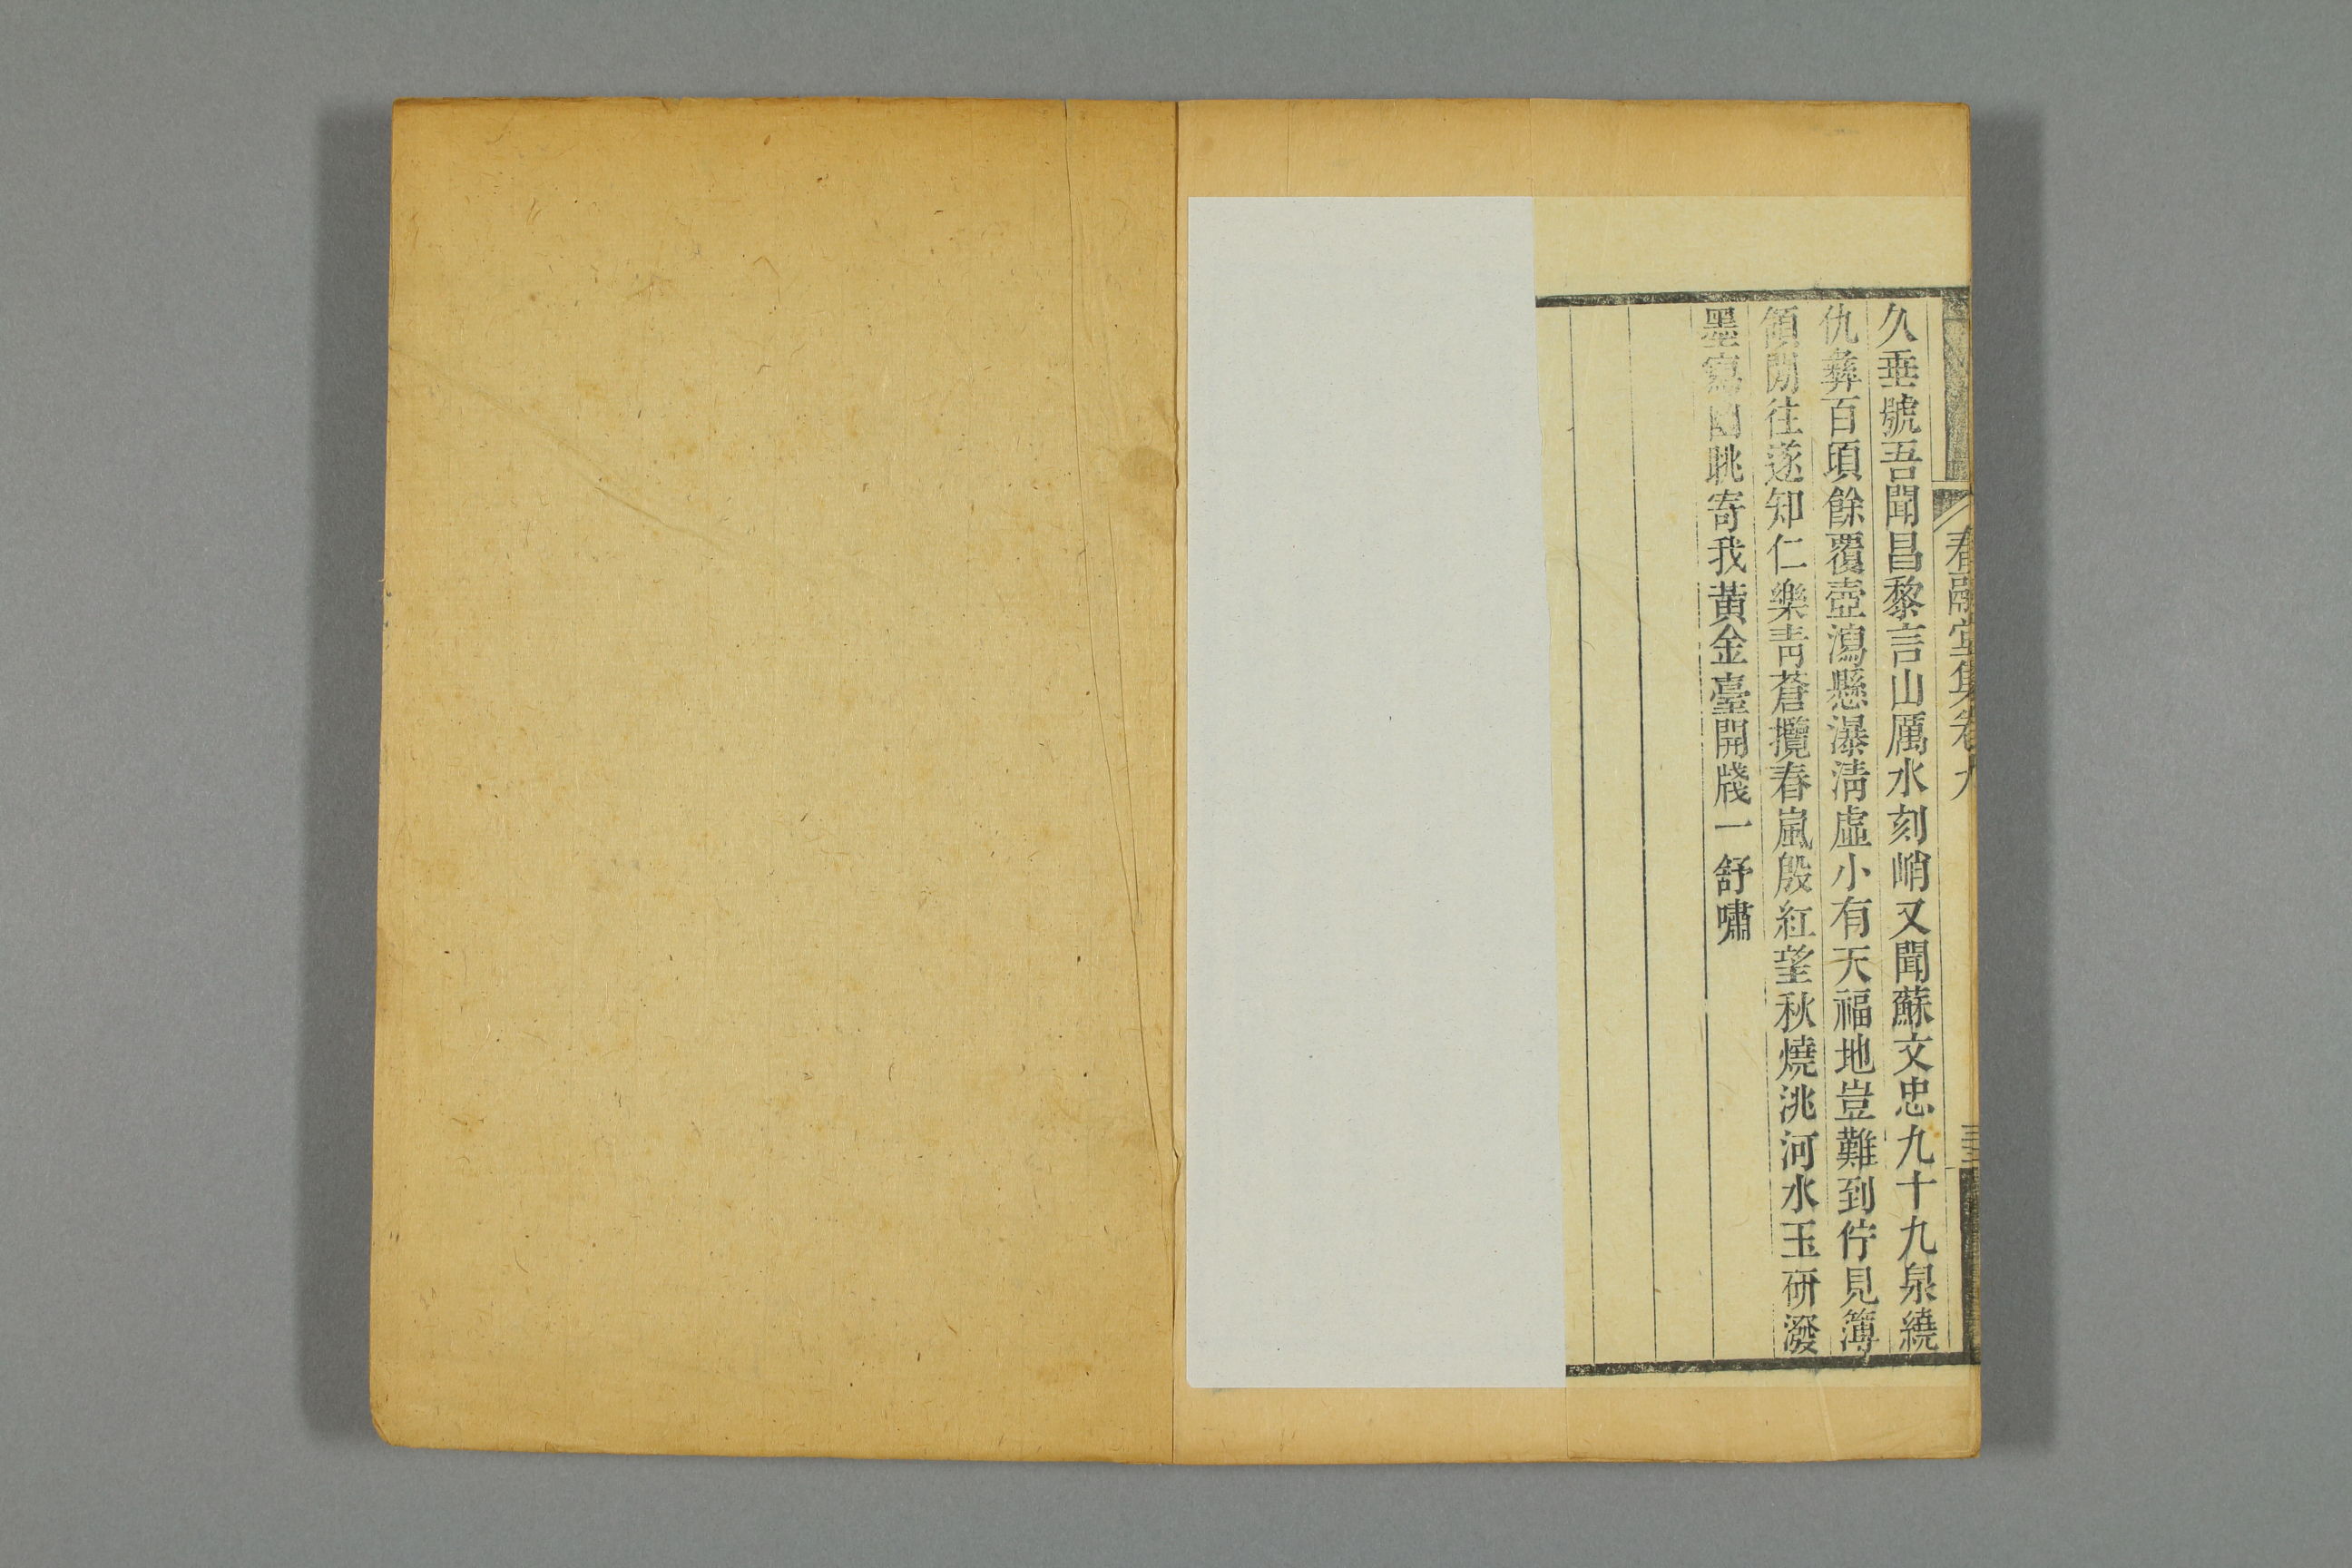 春融堂集卷九
久垂號吾聞昌黎言山厲水刻峭又聞蘇文忠九十九泉繞
仇彝百頃餘覆壺瀉懸瀑清虛小有天福地豈難到佇見簿
領閒往遂知仁樂靑蒼攬春嵐殷紅望秋燒洮河水玉研潑
墨寫幽眺寄我黃金臺開牋一舒嘯